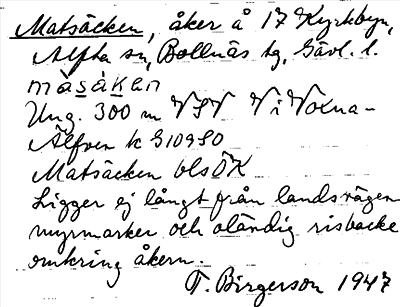 Matsäcken, åker å 17 Kyrkbyn,
Alfta sn, Bollnäs tg, Gävl. l.
màsàkan
Ung. 300 m VSV V i Voxna-
Älfven k G109 SO
Matsäcken bls ÖK
Ligger ej långt från landsvägen
myrmarker och oländig risbacke
omkring åkern.
T. Birgerson 1947